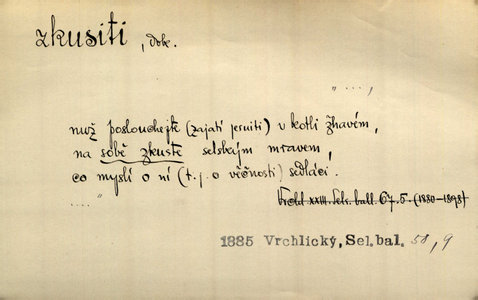 zkusiti, dok.
„ ...,
nuž poslouchejte (zajatí jesuiti) v kotli žhavém,
na sobě zkuste selským mravem,
co myslí o ní (t.j. o věčnosti) sedláci.
.... "
XXIII. Selc. ball. 67.5. (1880-1898)
1885 Vrchlický, Sel.bal. 58, 9